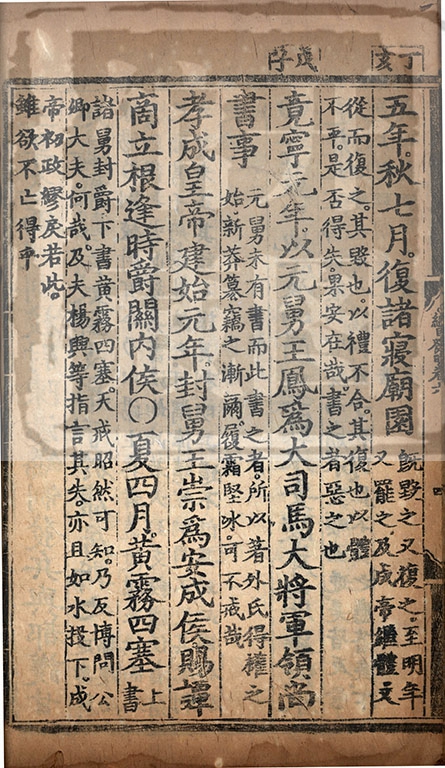 丁亥
戊子
五年。秋七月。復諸寢廟園
旣毀之又復之。至明年
又罷之。及成帝繼體。又
從而復之。其毀也。以禮不合。其復也。以體
不平。是否得失。果安在哉。書之者。惡之也
竟寧元年。以元舅王鳳爲大司馬大將軍領尚
書事
元舅未有書而此書之者。所以著外氏得權之
始新莽簒竊之漸爾。履霜堅冰。可不戒哉
孝成皇帝建始元年。封舅王崇爲安成侯。賜譚
商立根逢時爵關內侯〇夏四月。黃霧四塞
上
書
諸舅封爵下書黃霧四塞。天戒昭然可知。乃反博問公
卿大夫。何哉。及夫楊興等指言其失。亦且如水投下。成
帝初政繆戾若此。
雖欲不亡得乎